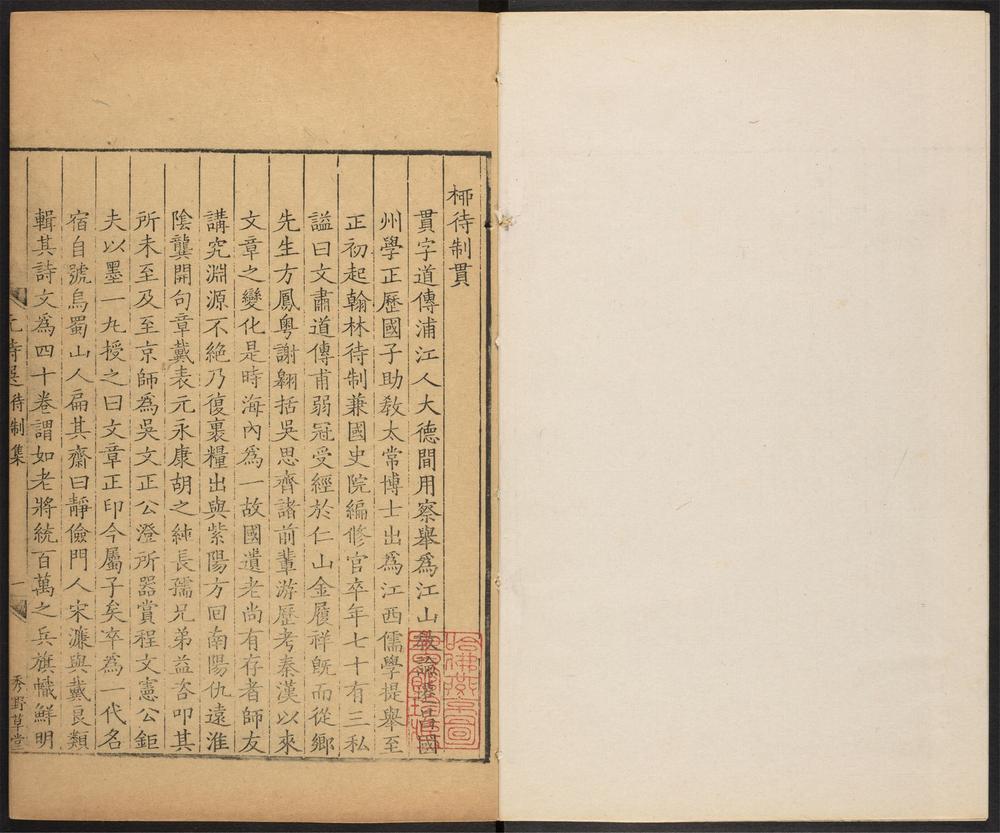 柳待制貫
貫字道傳浦江人大德間用察舉爲江山教諭遷昌國
州學正歷國子助教太常博士出爲江西儒學提舉至
正初起翰林待制兼國史院編修官卒年七十有三私
謚曰文肅道傳甫弱冠受經於仁山金履祥旣而從鄉
先生方鳳粵謝翱括吳思齊諸前輩游歷考秦漢以來
文章之變化是時海內爲一故國遺老尚有存者師友
講究淵源不絕乃復裹糧出與紫陽方回南陽仇遠淮
陰龔開句章戴表元永康胡之純長孺兄弟益咨叩其
所未至及至京師爲吳文正公澄所器賞程文憲公鉅
夫以墨一丸授之曰文章正印今屬子矣卒爲一代名
宿自號烏蜀山人扁其齋曰靜儉門人宋濂與戴良類
輯其詩文爲四十卷謂如老將統百萬之兵旗幟鮮明
元詩選 待制集 一 秀野草堂
哈佛燕京圖